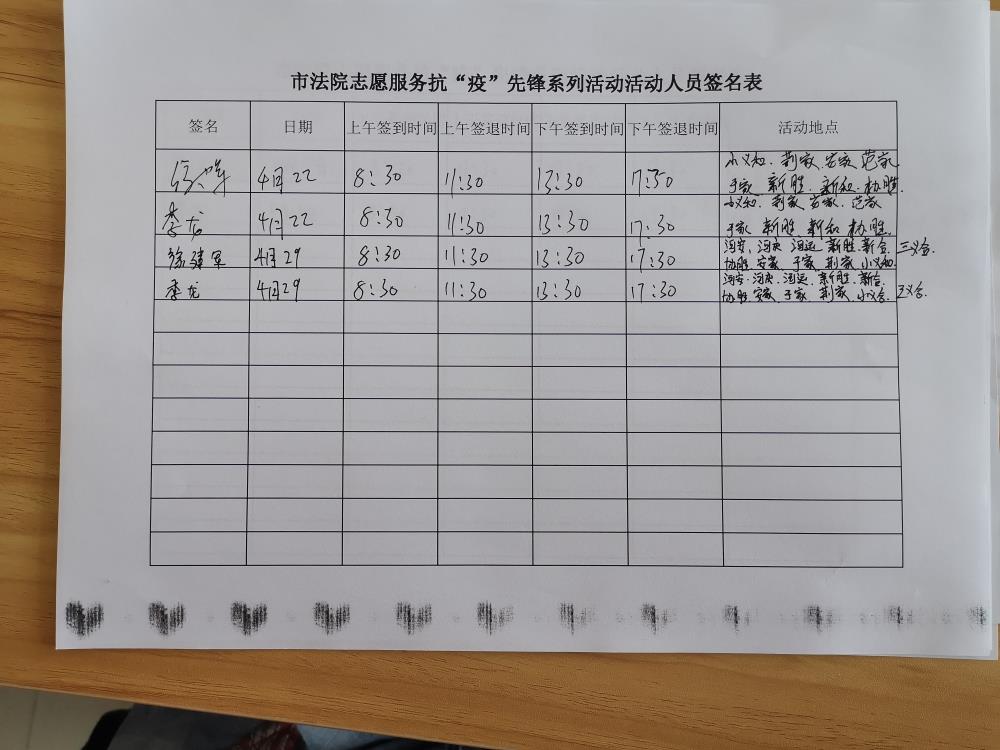 市法院志愿服务抗“疫”先锋系列活动活动人员签名表
签名 日期 上午签到时间 上午签退时间 下午签到时间 下午签退时间 活动地点
小义和、荆家、安家、范家
4月22 8:30 11:30 13:30 17:30
于家、新胜、新和、协胜
小义和、荆家、安家、范家
李龙 4月22 8:30 11:30 13:30 17:30 于家、新胜、新和、协胜
新胜、新合、三义合
徐建军 4月29 8:30 11:30 13:30 17:30
协胜、安家、于家、荆家、小义和
新胜、新合
李龙 4月29 8:30 11:30 13:30 17:30
协胜、安家、于家、荆家、小义合、三义合